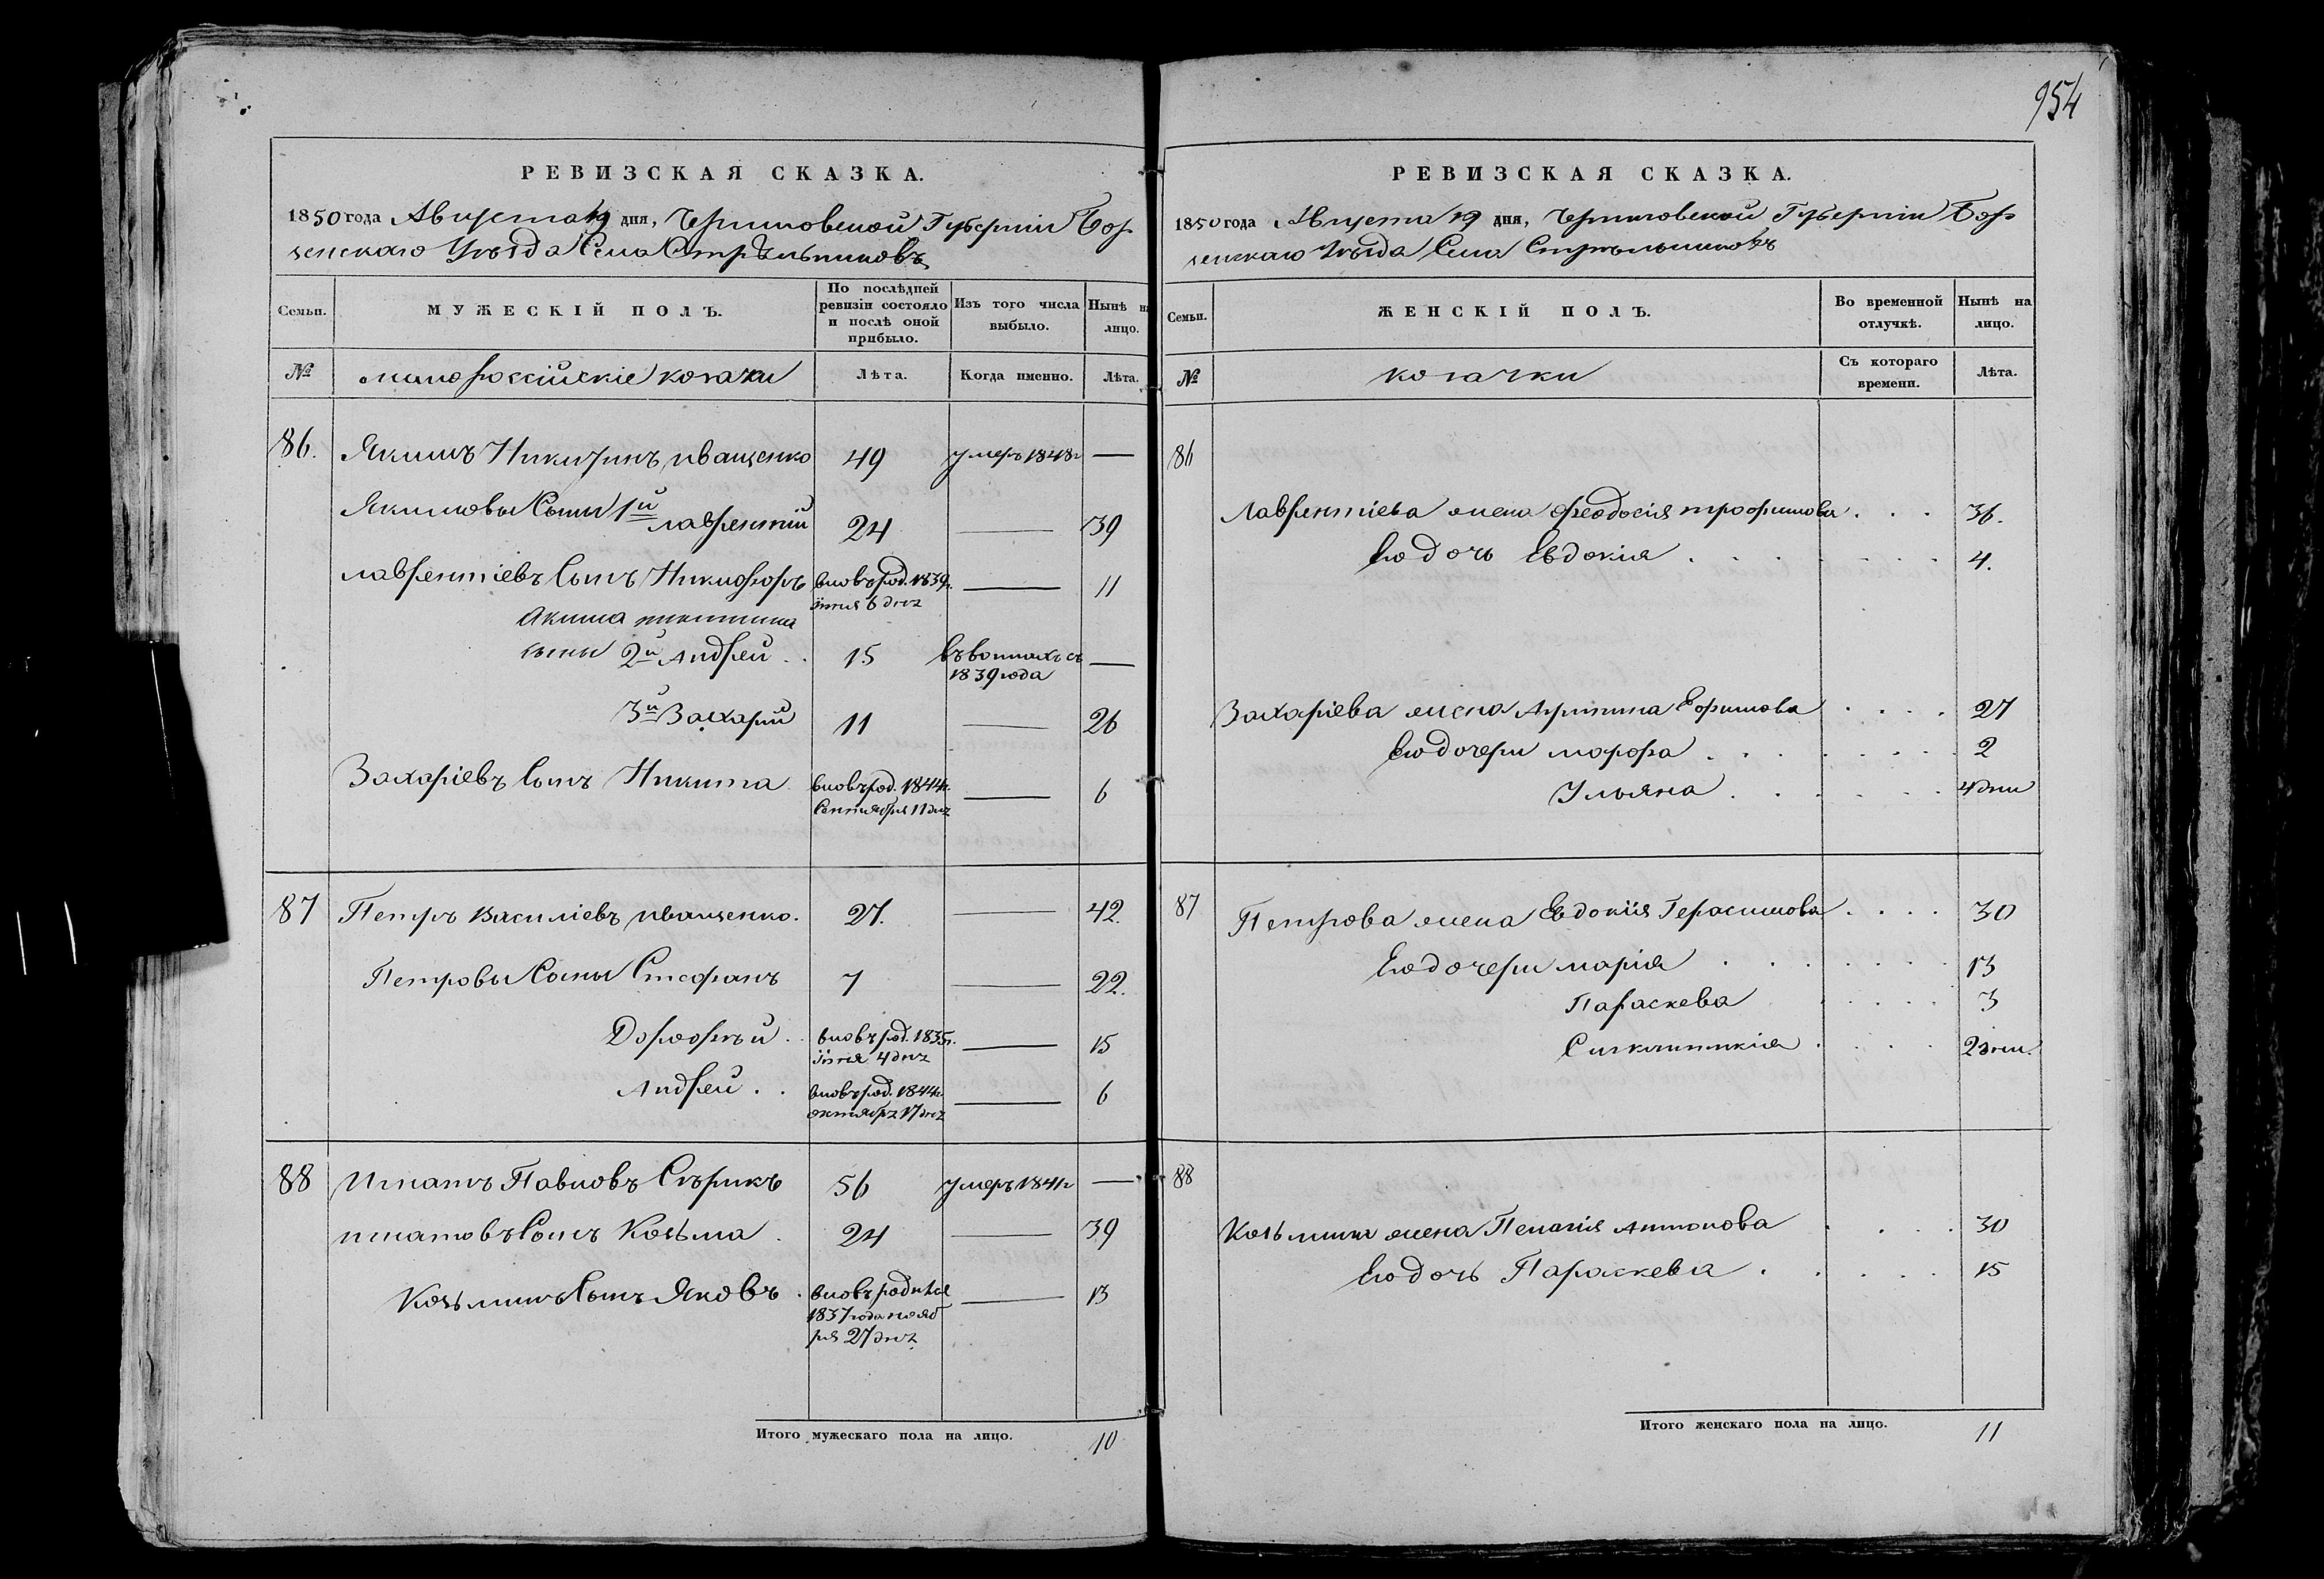 954
РЕВИЗСКАЯ СКАЗКА.
1850 года Августа 19 дня, Черниговской Губерніи Бор
зенскаго Уѣзда Села Стрѣльниковъ
Семьи.
МУЖЕСКІЙ ПОЛЪ.
По послѣдней ревизіи состояло и послѣ оной прибыло.
Изъ того числа выбыло.
Нынѣ на лицо.
№
малороссійскіе козаки
Лѣта.
Когда именно.
Лѣта.
86. Якимъ Никитинъ иващенко 49 умеръ 1848г —
Якимовы Сыны 1й лаврентій 24 — 39
лаврентіевъ Сынъ Никифоръ вновь род. 1839г. — 11
іюня 6 дня
Акима никитина
сыны 2й Андрей . . 15 въ воинахъ съ —
1839 года
3й Захарій 11 — 26
Захаріевъ Сынъ Никита вновь род. 1844г. — 6
Сентября 11 дня
87 Петръ Василіевъ иващенко. 27. — 42.
Петровы Сыны Стефанъ 7 — 22.
Дорофѣй . . вновь род. 1835г. — 15
іюня 4 дня
Андрей . . вновь род. 1844г. — 6
октября 17 дня
88 Игнатъ Павловъ Сѣрикъ 56 умеръ 1841г —
игнатовъ Сынъ Козьма . 24 — 39
Козьминъ Сынъ Яковъ . вновь родился — 13
1837 года нояб
ря 27 дня
Итого мужескаго пола на лицо. 10
РЕВИЗСКАЯ СКАЗКА.
1850 года Августа 19 дня, Черниговской Губерніи Бор
зенскаго Уѣзда Села Стрѣльниковъ
Семьи.
ЖЕНСКІЙ ПОЛЪ.
Во временной отлучкѣ.
Нынѣ на лицо.
№
козачки
Съ котораго времени.
Лѣта.
86
Лаврентіева жена феодосія трофимова . . . 36.
Его дочь Евдокія . . . . . . . 4.
Захаріева жена Агрипина Ефимова . . . . 27
Его дочери марфа . . . . . . . 2
Ульяна . . . . . . 4 дни
87 Петрова жена Евдокія Герасимова . . . . 30
Его дочери марія . . . . . . . 13
Параскева . . . . . 3
Синклитикія . . . . 2 дни.
88
Козьмина жена Пелагія Антонова . . . . 30
Его дочь Параскева . . . . . 15
Итого женскаго пола на лицо. 11